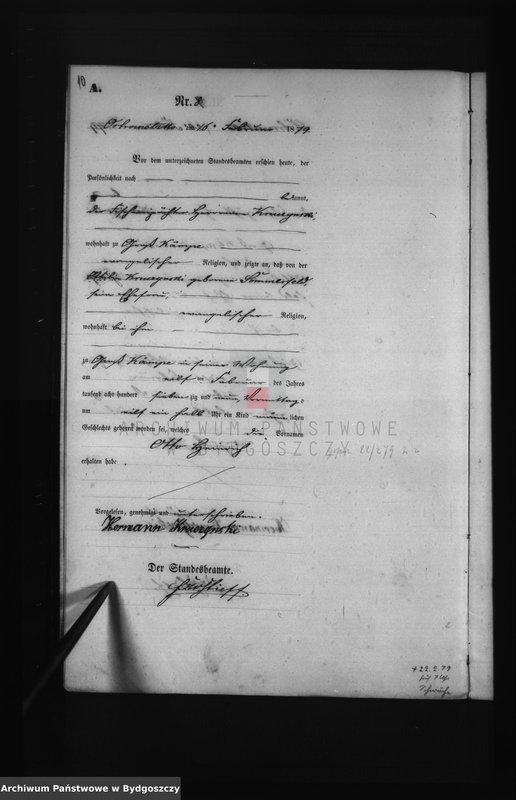 10
A.
Nr. 8
Ostrometzko am 16. Februar 1879
Vor dem unterzeichneten Standesbeamten erschien heute, der
Persönlichkeit nach
kannt,
der Fischereipächter Hermann Kruczynski
wohnhaft zu Groß Kämpe
evangelischer Religion, und zeigte an, daß von der
Kruczynski geborenen Sommerfeld,
seiner Ehefrau,
evangelischer Religion,
wohnhaft bei ihm
zu Groß Kämpe in seiner Wohnung
am elf ten Februar des Jahres
tausend acht hundert siebenzig und neun, Vormittags
um elf ein halb Uhr ein Kind männlichen
Geschlechts geboren worden sei, welches die Vornamen
Otto Heinrich
erhalten habe.
Vorgelesen, genehmigt und unterschrieben.
Hermann Kruczynski
Der Standesbeamte.
ARCHIWUM PAŃSTWOWE
W BYDGOSZCZY
† 22.2.79
Archiwum Państwowe w Bydgoszczy